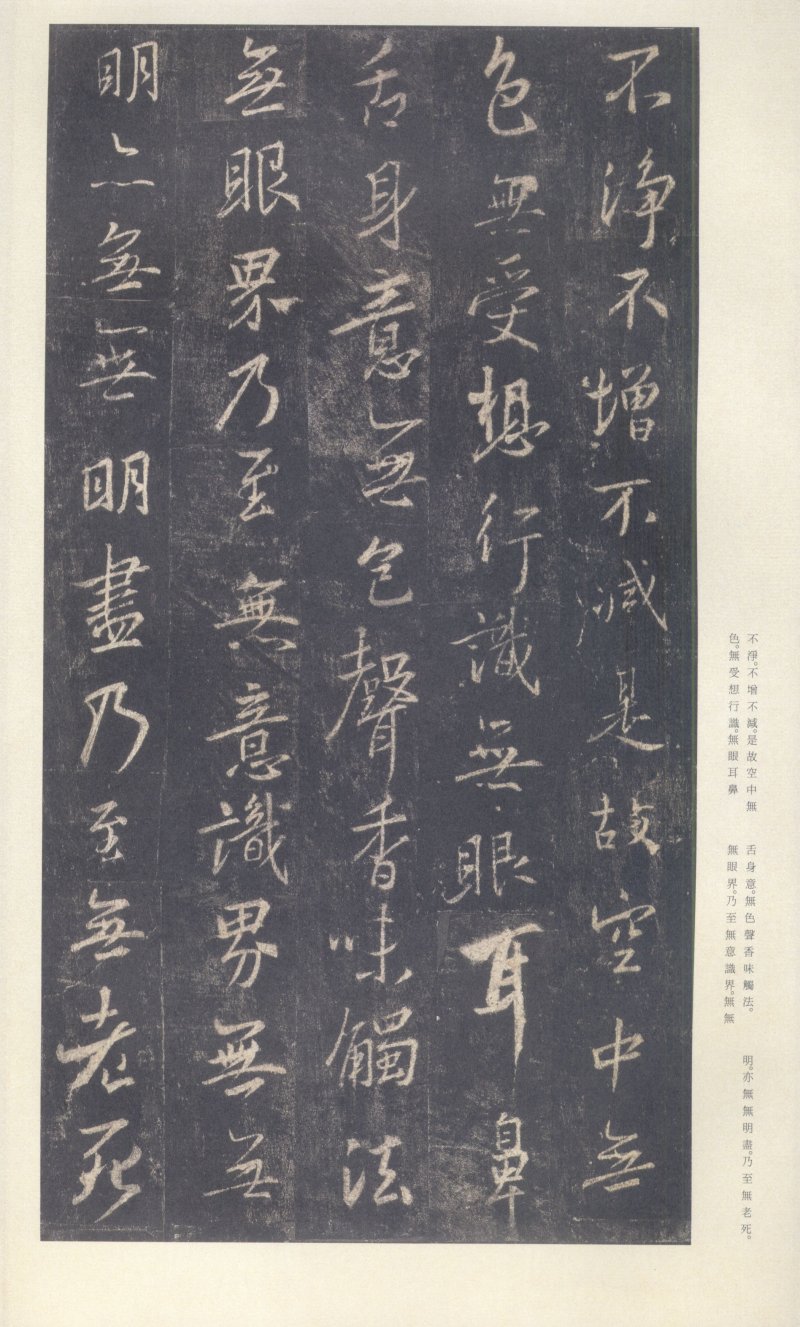 不淨。不增不減。是故空中無
色。無受想行識。無眼耳鼻
舌身意。無色聲香味觸法。
無眼界。乃至無意識界。無無
明。亦無無明盡。乃至無老死。
不淨不增不減是故空中無
色無受想行識無眼耳鼻
舌身意無色聲香味觸法
無眼界乃至無意識界無無
明亦無無明盡乃至無老死